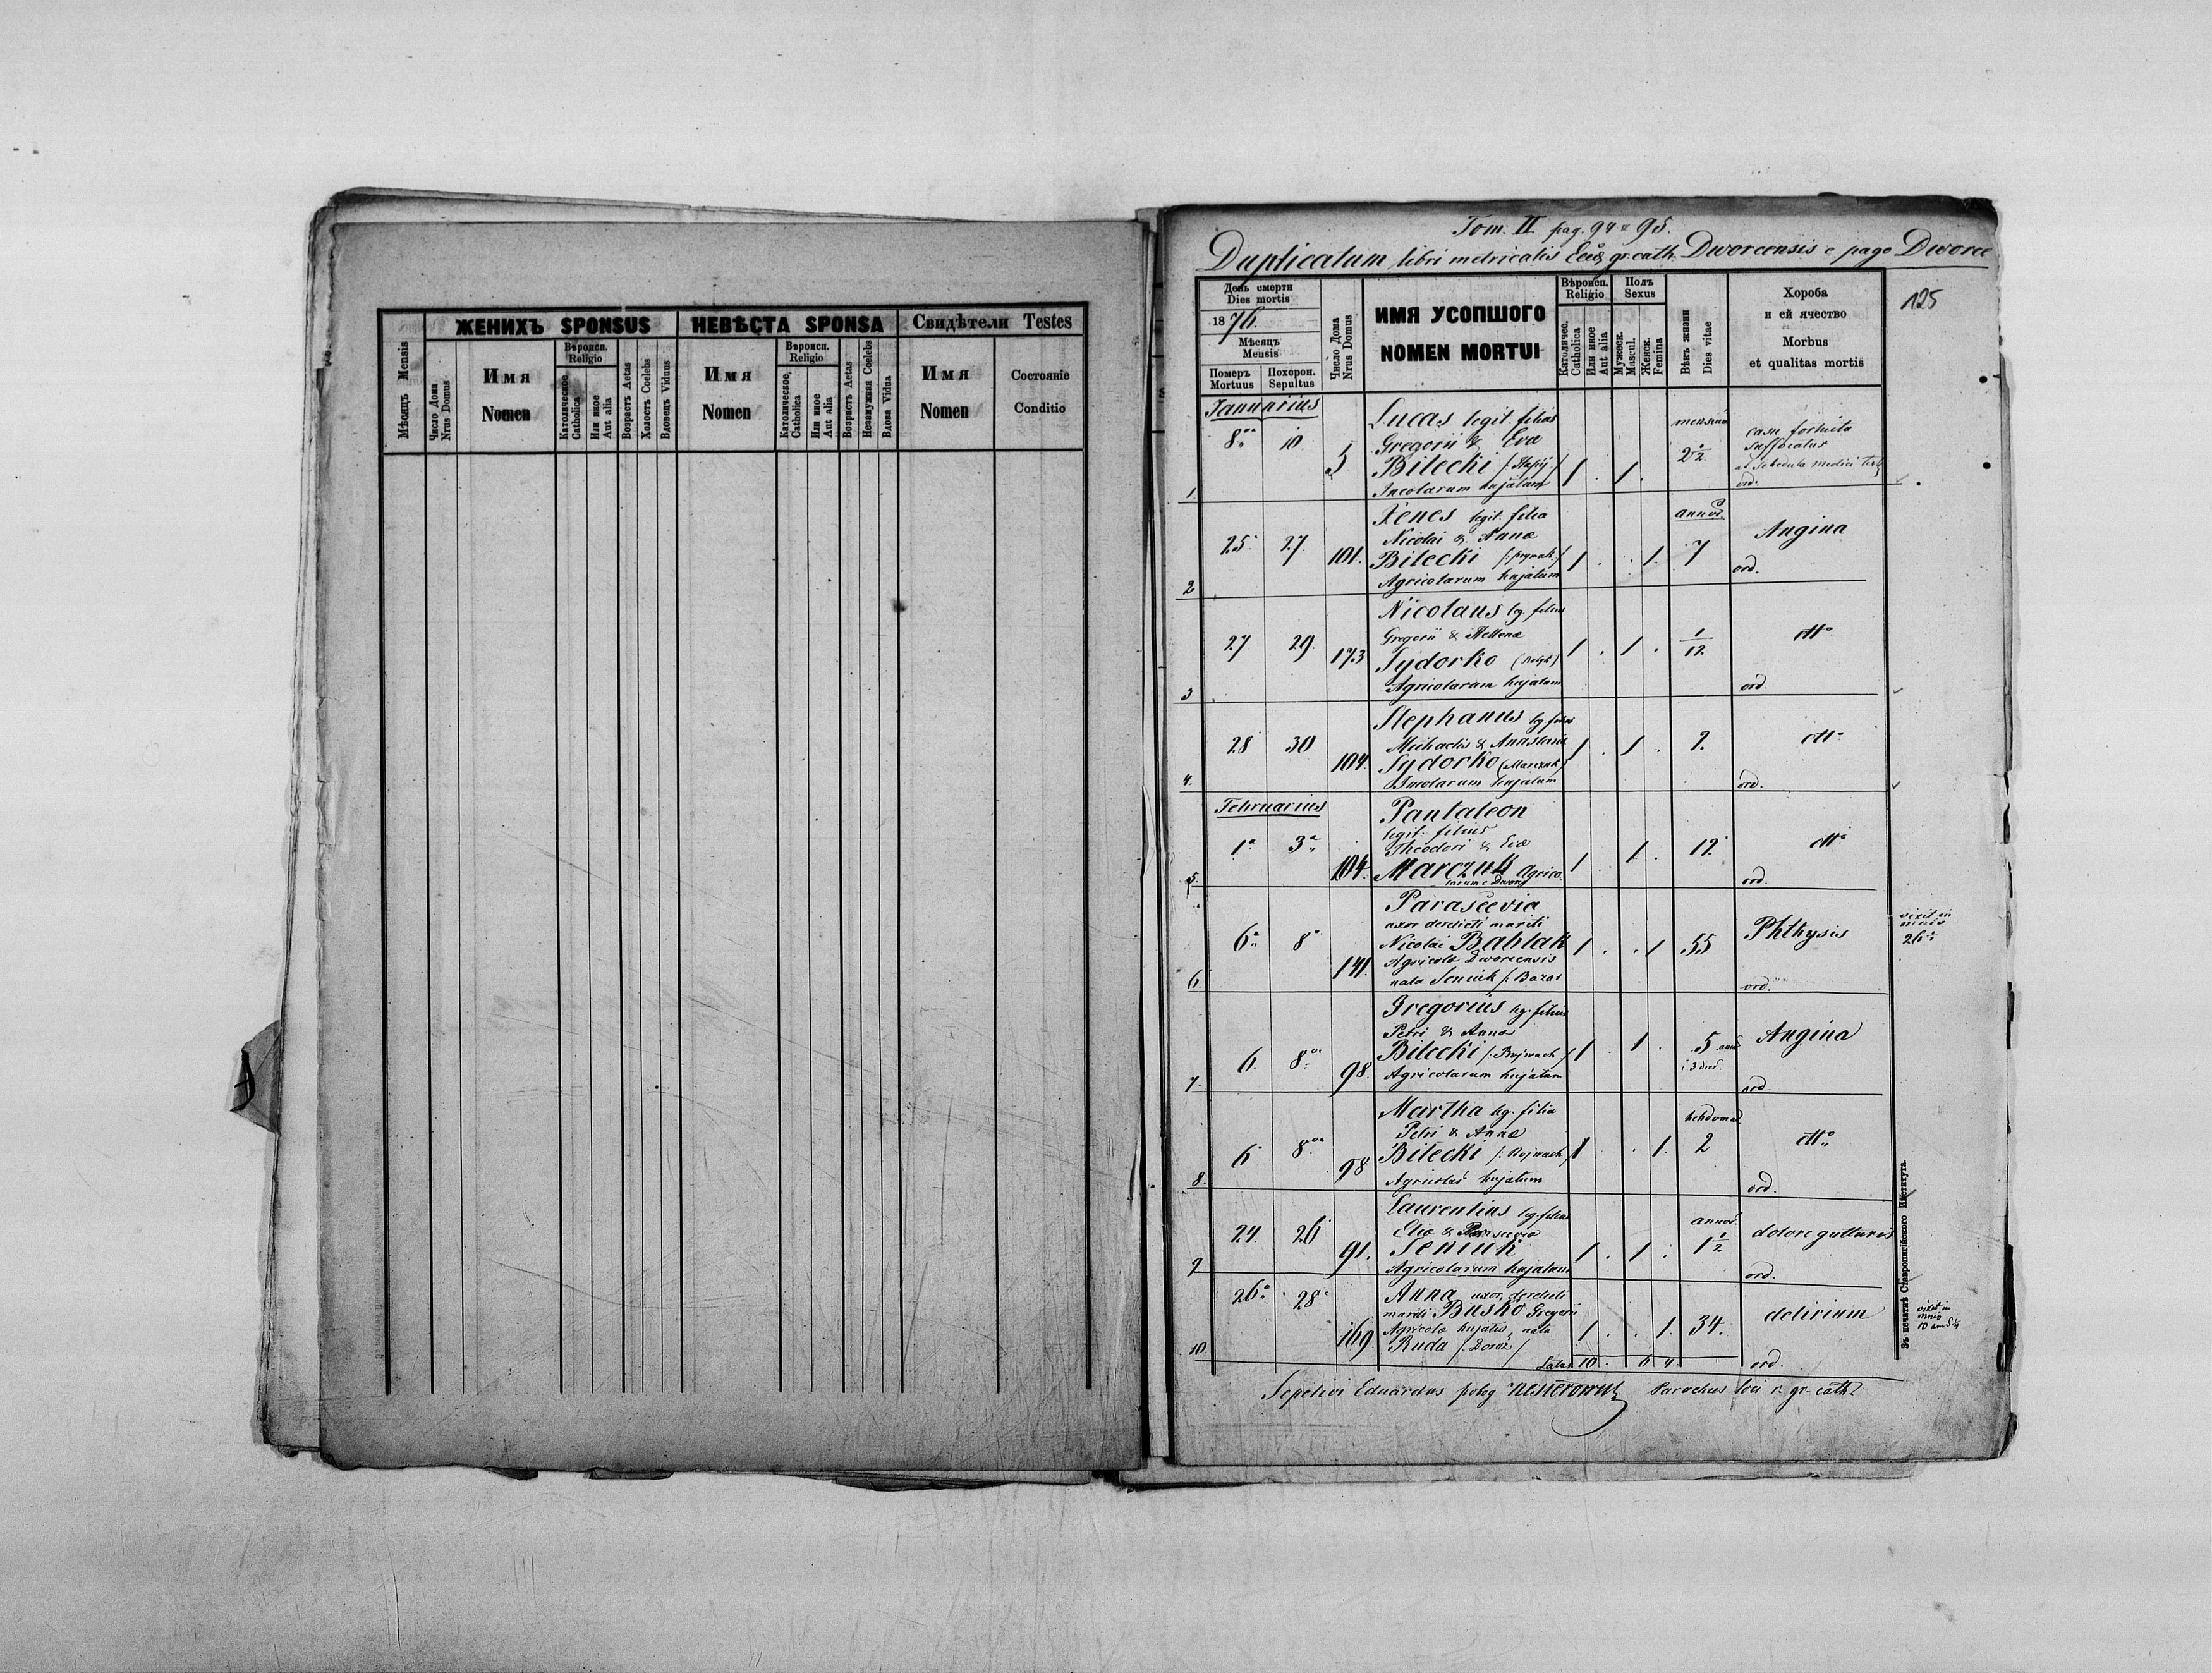 ЖЕНИХЪ SPONSUS
НЕВѢСТА SPONSA
Свидѣтели Testes
Мѣсяцъ Mensis
Число Дома
Nrus Domus
Имя
Nomen
Вѣроисп.
Religio
Католическое
Catholica
Или иное
Aut alia
Возрастъ Aetas
Холостъ Coelebs
Вдовецъ Viduus
Имя
Nomen
Вѣроисп.
Religio
Католическое,
Catholica
Или иное
Aut alia
Возрастъ Aetas
Незамужная Coelebs
Вдова Vidua
Имя
Nomen
Состояніе
Conditio
Tom. II pag. 94 & 95.
Duplicatum libri metricalis gr. cath. Dworcensis e pago Dworce
125
День смерти
Dies mortis
1876.
Мѣсяцъ
Mensis
Померъ
Mortuus
Похорон.
Sepultus
Число Дома
Nrus Domus
ИМЯ УСОПШОГО
NOMEN MORTUI
Вѣроисп.
Religio
Католичес.
Catholica
Или иное
Aut alia
Полъ
Sexus
Мужеск.
Mascul.
Женск.
Femina
Вѣкъ жизни
Dies vitae
Хороба
и ей ячество
Morbus
et qualitas mortis
Januarius
Lucas legit. filius
Gregorii & Eva
Bilecki
Incolarum hujatum
1 8 10 5 1 . 1 . mensium 2 casu fortuito
suffocatus
medici
ord.
Xenes legit. filia
Nicolai & Anna
Bilecki
Agricolarum hujatum
2 25 27. 101. 1 . . 1. annor. 7 Angina
ord.
Nicolaus leg. filius
Gregorii & Hellena
Sydorko
Agricolarum hujatum
3 27 29. 173 1 . 1 . 1/12 dtto
ord.
Stephanus leg filius
Michaelis & Anastasia
Sydorko (Marczuk)
Incolarum hujatum
4. 28 30 104 1 . 1 . 2. dtto
ord.
Februarius
Pantaleon
legit: filius
Theodori & Eva
Marczuk Agrico
larum e Dworce
5. 1a 3a 104. 1 1 . 12. dtto
ord.
Parascevia
uxor derelicti mariti
Nicolai Bablak
Agricola Dworcensis
nata Seniuk
6. 6a 8a 141. 1 . . 1 55 Phthysis
ord.
vixit in
26
Gregorius leg. filius
Petri & Anna
Bilecki
Agricolarum hujatum
7. 6. 8 98. 1 . 1 . 5 Angina
ord
Martha leg. filia
Petri & Anna
Bilecki
Agricolar hujatum
8. 6 8 98 1 . 1. hebdomad 2 dtto
ord.
Laurentius leg. filius
Elia & Parascevia
Seniuk
Agricolarum hujatum
9 24 26 91. 1 . 1 . annor. 1 1/2 dolore gutturis
ord.
Anna uxor derelicti
mariti Busko Gregorii
Agricola hujatis, nata
Ruda
10. 26a 28 169 1 . . 1. 34. delirium
ord.
vixit in
10
Latus 10 . 6 4.
Sepelivi Eduardus Nesterowicz Parochus loci r. gr. cath.
Зъ печатнѣ Ставропигійского Института.